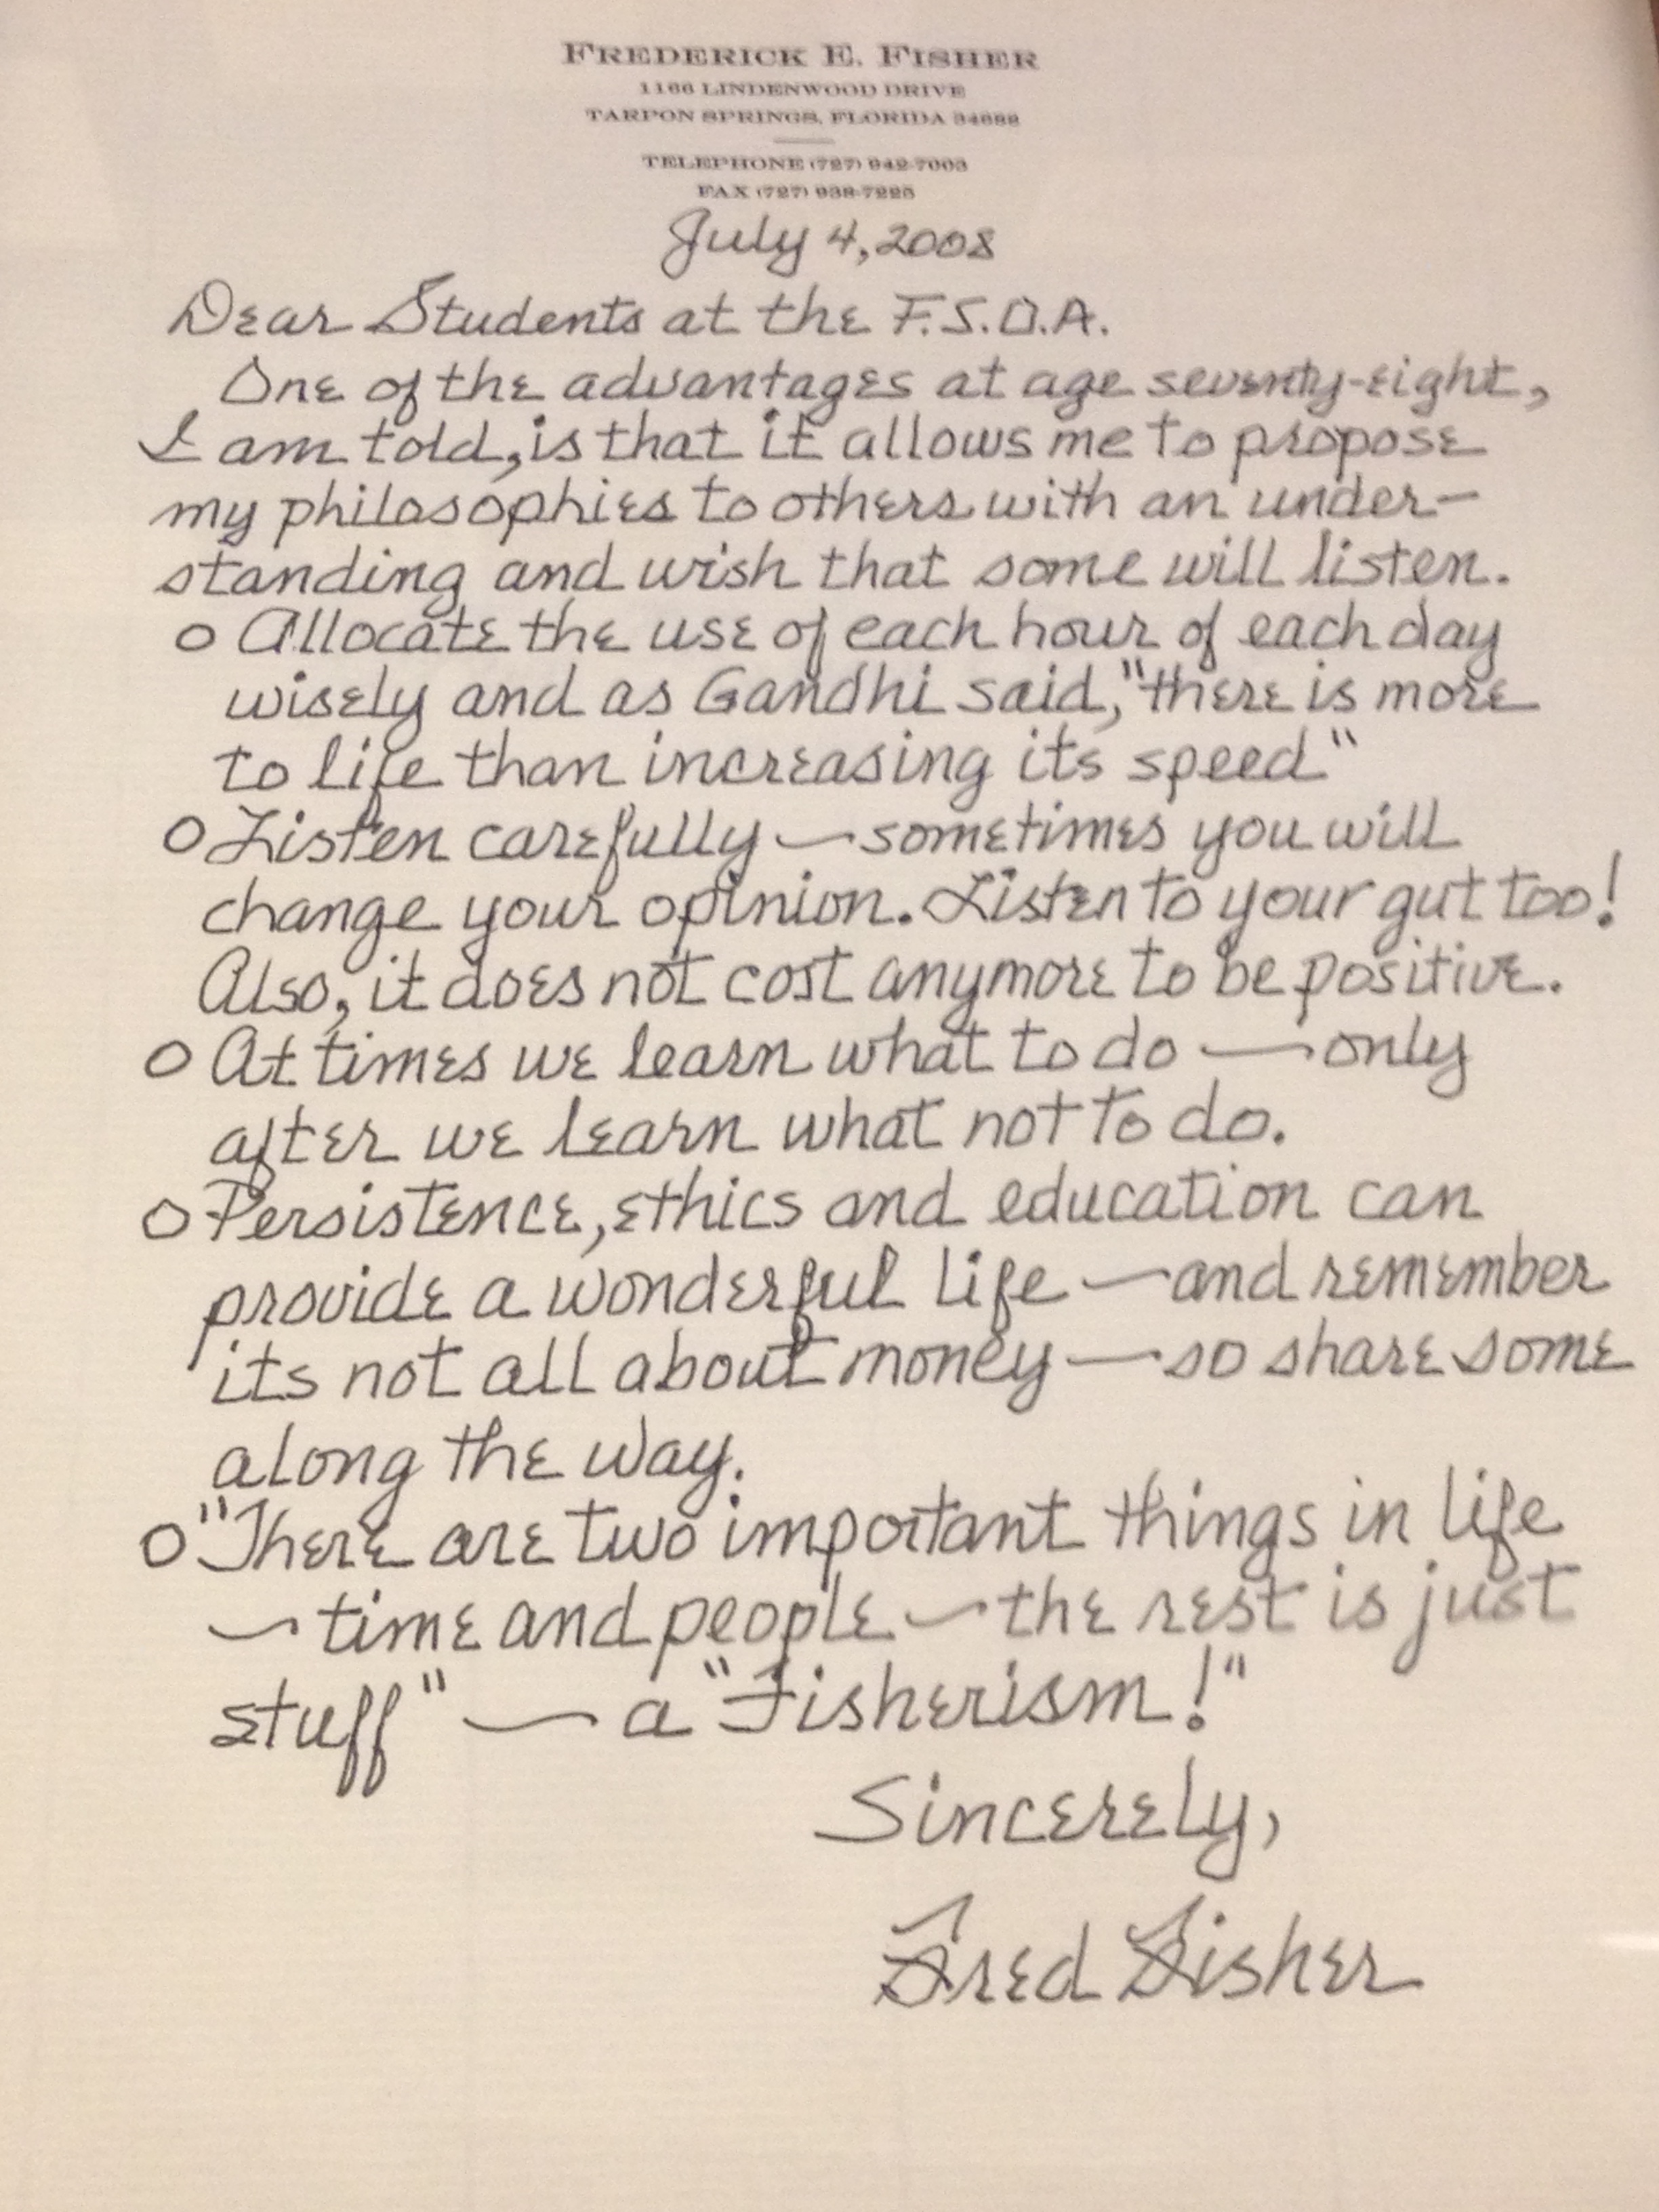 FREDERICK E. FISHER
1166 LINDENWOOD DRIVE
TARPON SPRINGS, FLORIDA 34688
TELEPHONE (727) 942-7003
FAX (727) 938-7225
July 4, 2008
Dear Students at the F.S.O.A.
One of the advantages at age seventy-eight,
I am told, is that it allows me to propose
my philosophies to others with an under-
standing and wish that some will listen.
o Allocate the use of each hour of each day
wisely and as Gandhi said, "there is more
to life than increasing its speed"
o Listen carefully — sometimes you will
change your opinion. Listen to your gut too!
Also, it does not cost anymore to be positive.
o At times we learn what to do — only
after we learn what not to do.
o Persistence, ethics and education can
provide a wonderful life — and remember
its not all about money — so share some
along the way.
o "There are two important things in life
— time and people — the rest is just
stuff" — a "Fisherism!"
Sincerely,
Fred Fisher